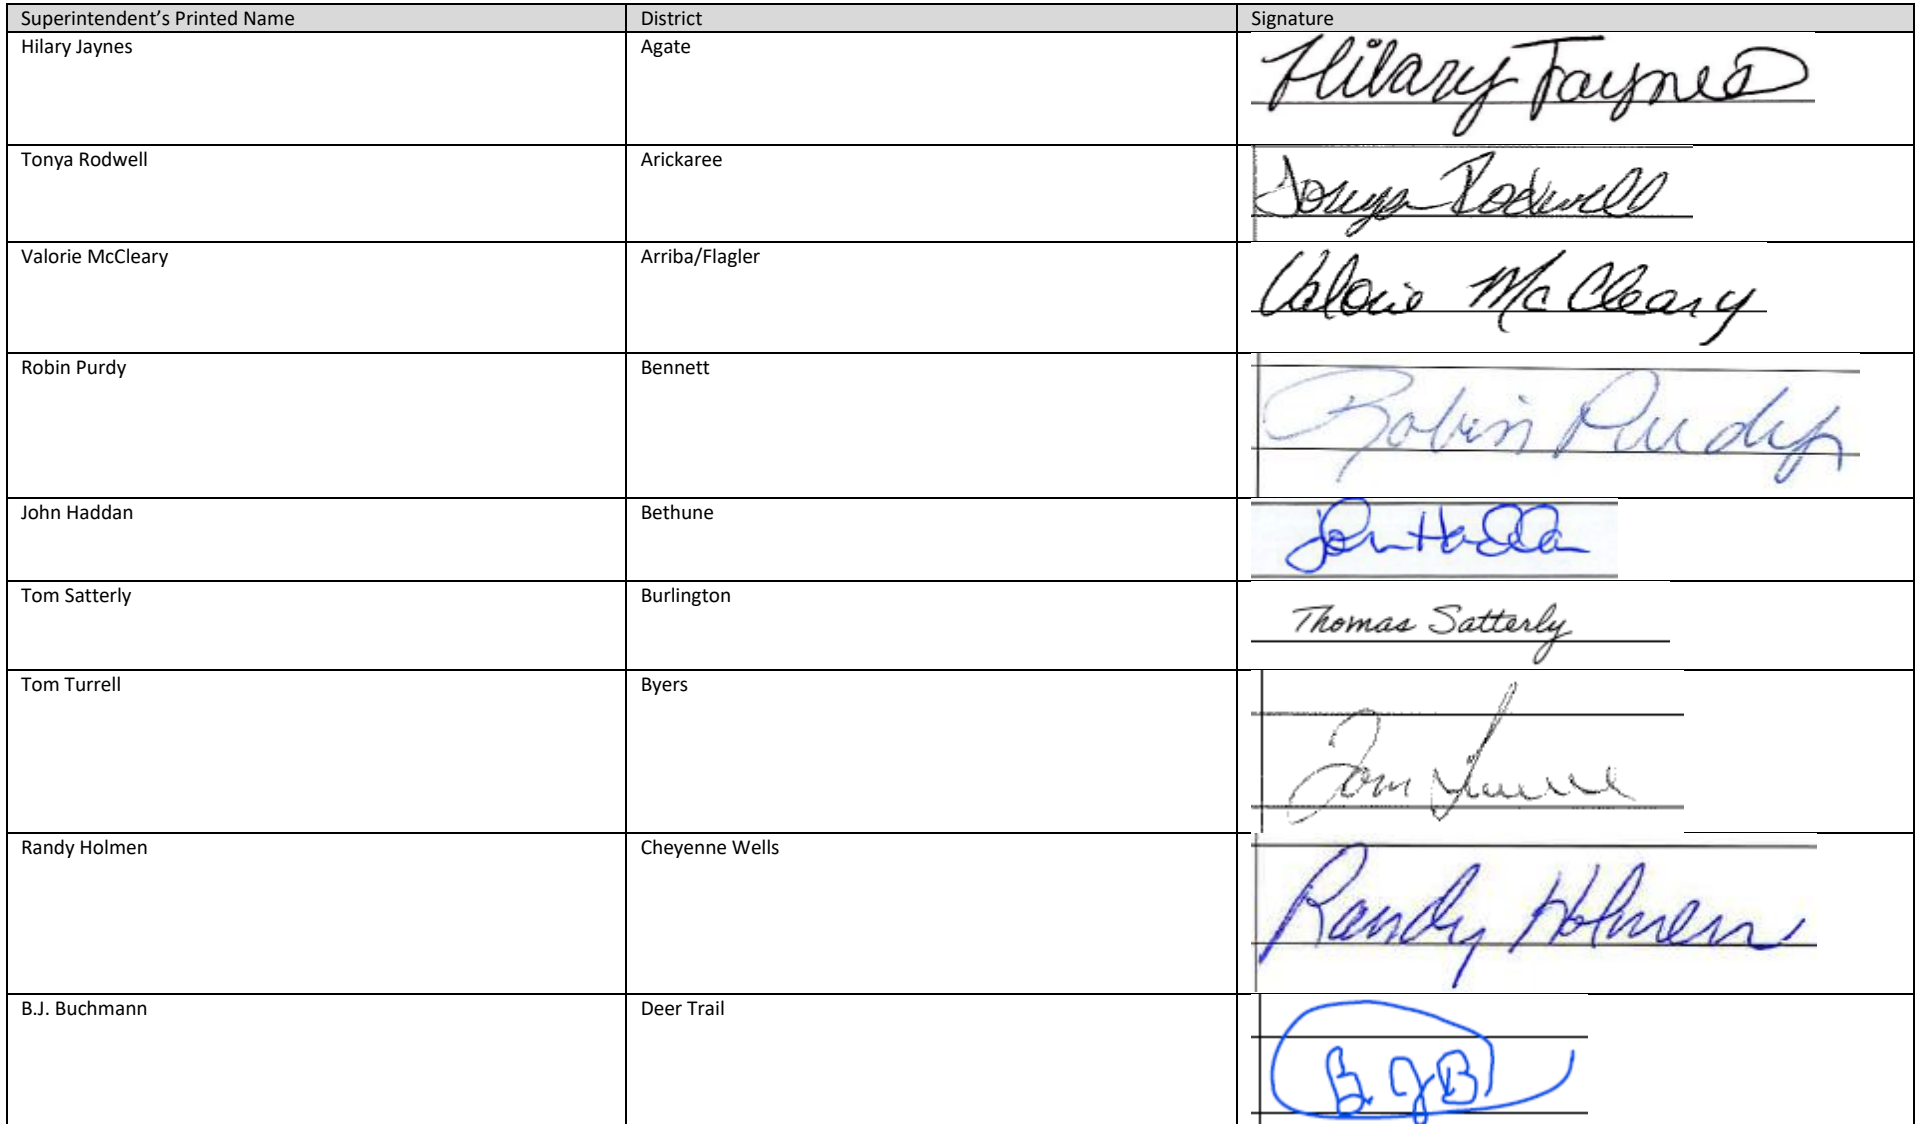 Superintendent’s Printed Name District Signature
Hilary Jaynes Agate Hilary Jaynes
Tonya Rodwell Arickaree Tonya Rodwell
Valorie McCleary Arriba/Flagler Valorie McCleary
Robin Purdy Bennett Robin Purdy
John Haddan Bethune John Haddan
Tom Satterly Burlington Thomas Satterly
Tom Turrell Byers Tom Turrell
Randy Holmen Cheyenne Wells Randy Holmen
B.J. Buchmann Deer Trail B.J.B